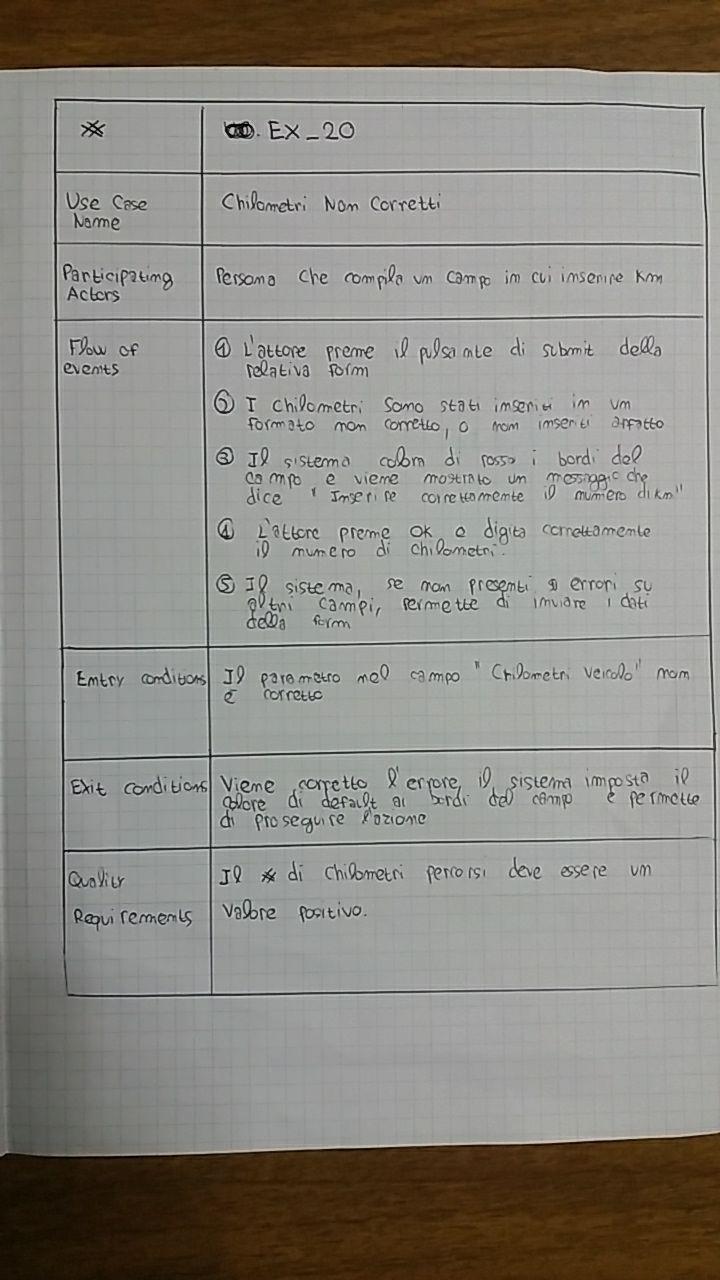 # EX_20
Use Case
Name
Chilometri Non Corretti
Participating
Actors
Persona che compila un campo in cui inserire Km
Flow of
events
① L'attore preme il pulsante di submit della
relativa form
② I chilometri sono stati inseriti in un
formato non corretto, o non inseriti affatto
③ Il sistema colora di rosso i bordi del
campo e viene mostrato un messaggio che
dice "Inserire correttamente il numero di km"
④ L'attore preme OK e digita correttamente
il numero di chilometri.
⑤ Il sistema, se non presenti errori su
altri campi, permette di inviare i dati
della form
Entry conditions
Il parametro nel campo "Chilometri veicolo" non
è corretto
Exit conditions
Viene corretto l'errore, il sistema imposta il
colore di default ai bordi del campo e permette
di proseguire l'azione
Quality
Requirements
Il # di chilometri percorsi deve essere un
valore positivo.